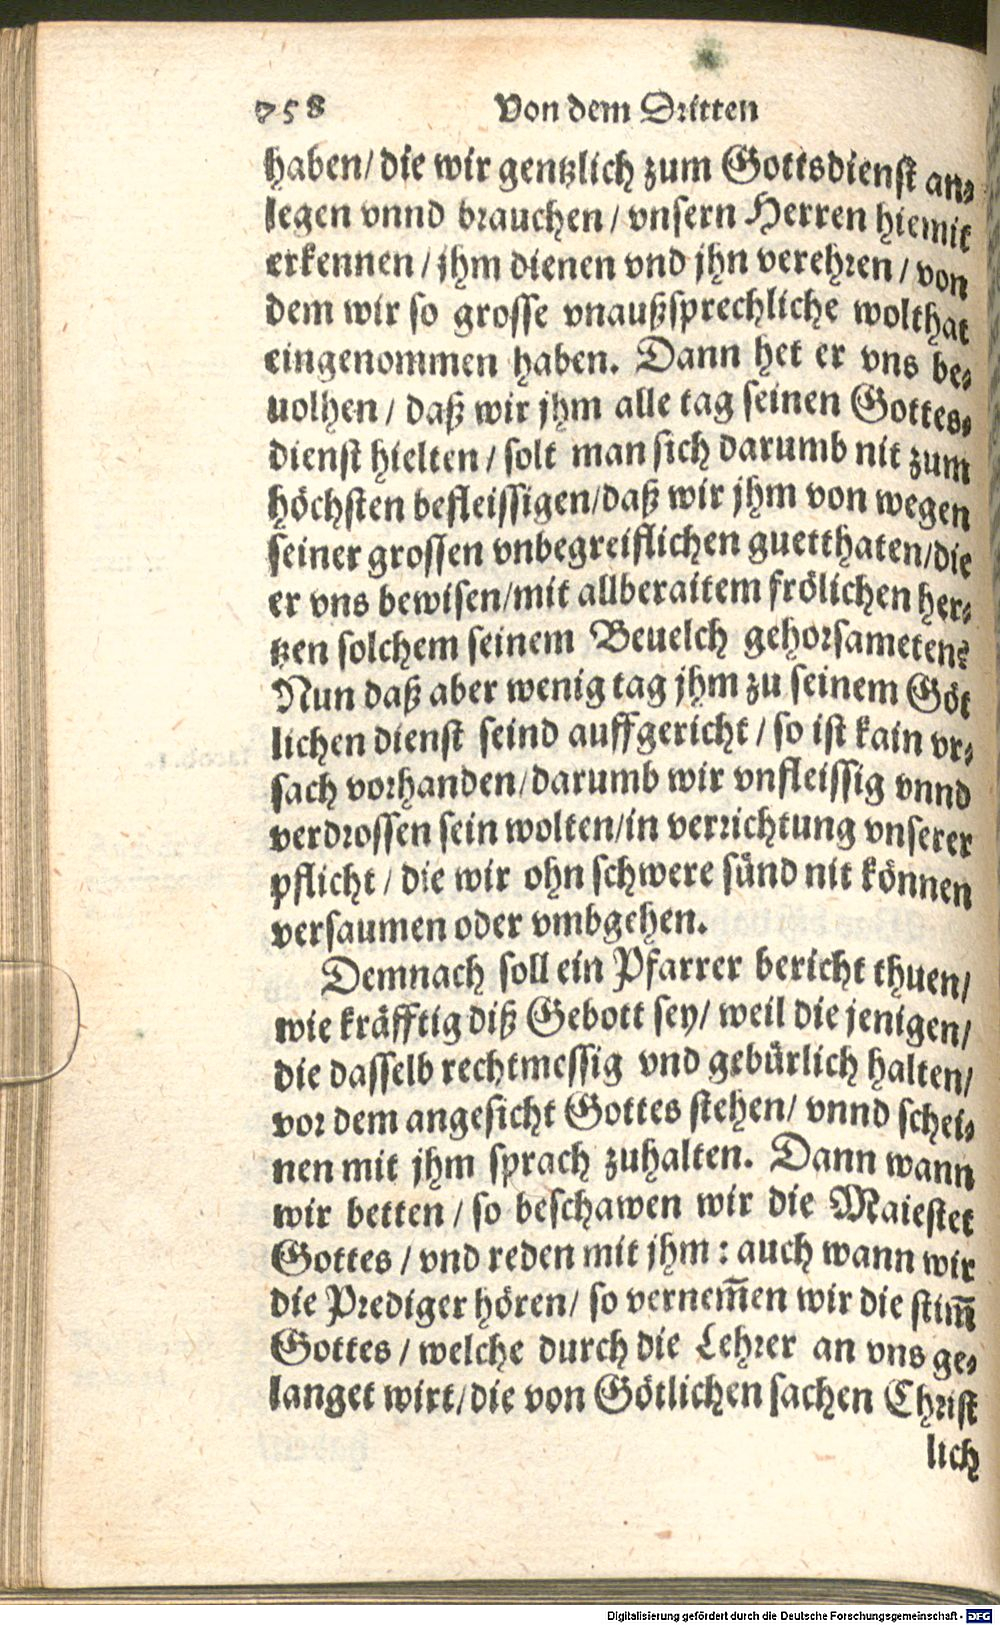 758 Von dem Dritten
haben/ die wir gentzlich zum Gottsdienst an⸗
legen vnnd brauchen/ vnsern Herren hiemit
erkennen/ jhm dienen vnd jhn verehren/ von
dem wir so grosse vnaußsprechliche wolthat
eingenommen haben. Dann het er vns be⸗
uolhen/ daß wir jhm alle tag seinen Gottes⸗
dienst hielten/ solt man sich darumb nit zum
höchsten befleissigen/ daß wir jhm von wegen
seiner grossen vnbegreiflichen guetthaten/ die
er vns bewisen/ mit allberaitem frölichen her⸗
tzen solchem seinem Beuelch gehorsameten?
Nun daß aber wenig tag jhm zu seinem Göt
lichen dienst seind auffgericht/ so ist kain vr⸗
sach vorhanden/ darumb wir vnfleissig vnnd
verdrossen sein wolten/ in verrichtung vnserer
pflicht/ die wir ohn schwere sünd nit können
versaumen oder vmbgehen.
Demnach soll ein Pfarrer bericht thuen/
wie kräfftig diß Gebott sey/ weil die jenigen/
die dasselb rechtmessig vnd gebürlich halten/
vor dem angesicht Gottes stehen/ vnnd schei⸗
nen mit jhm sprach zuhalten. Dann wann
wir betten/ so beschawen wir die Maiestet
Gottes/ vnd reden mit jhm: auch wann wir
die Prediger hören/ so vernem̃en wir die stim̃
Gottes/ welche durch die Lehrer an vns ge⸗
langet wirt/ die von Götlichen sachen Christ
lich
Digitalisierung gefördert durch die Deutsche Forschungsgemeinschaft - DFG